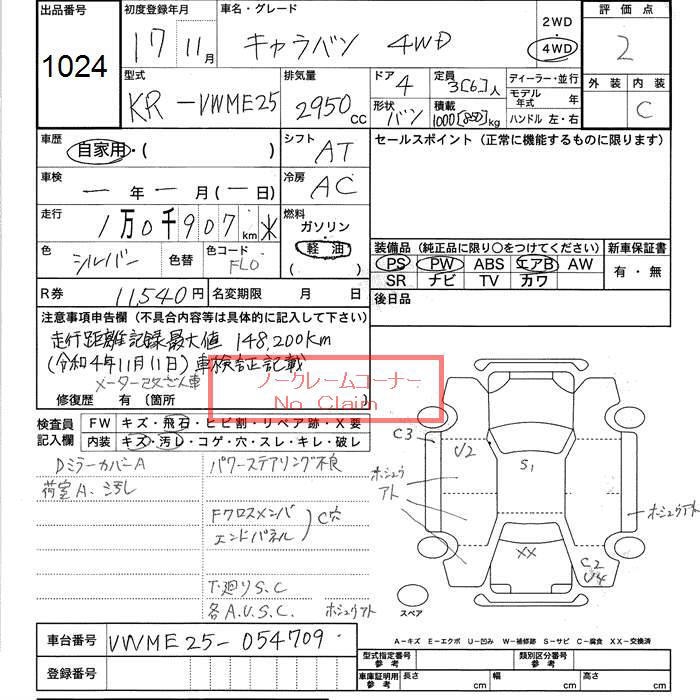 出品番号 初度登録年月 車名・グレード 2WD 評価点
1024 17 11月 キャラバン 4WD 4WD 2
型式 排気量 ドア 4 定員 3[6]人 ディーラー・並行 外装 内装
KR-VWME25 2950 cc 形状 バン 積載 1000[850]kg モデル年式 年 C
ハンドル 左・右
車歴 自家用・( ) シフト AT セールスポイント(正常に機能するものに限ります)
車検 ー年ー月(ー日) 冷房 AC
走行 1万0千907km ※ 燃料 ガソリン
軽油
( )
色 シルバー 色替 色コード FL0
装備品(純正品に限り〇をつけてください) 新車保証書
PS PW ABS エアB AW 有・無
SR ナビ TV カワ
R券 11,540円 名変期限 月 日 後日品
注意事項申告欄(不具合内容等は具体的に記入して下さい)
走行距離記録最大値 148,200km
(令和4年11月11日)車検証記載
メーター改ざん車
ノークレームコーナー
No Claim
修復歴 有〔箇所
検査員記入欄 FW キズ・飛石・ヒビ割・リペア跡・X要
内装 キズ・汚し・コゲ・穴・スレ・キレ・破レ
Dミラーカバー A パワーステアリング不良
荷室A.汚し
Fクロスメンバ C穴
エンドパネル
下廻りS.C
各A.U.S.C. ホシュウアト
C3 U2 S1
ホシュウアト
ホシュウアト
XX C2 U4
スペア
A-キズ E-エクボ U-凹み W-補修跡 S-サビ C-腐食 XX-交換済
車台番号 VWME25-054709
登録番号
型式指定番号 参考 類別区分番号 参考
車庫証明用 参考 長さ cm 幅 cm 高さ cm